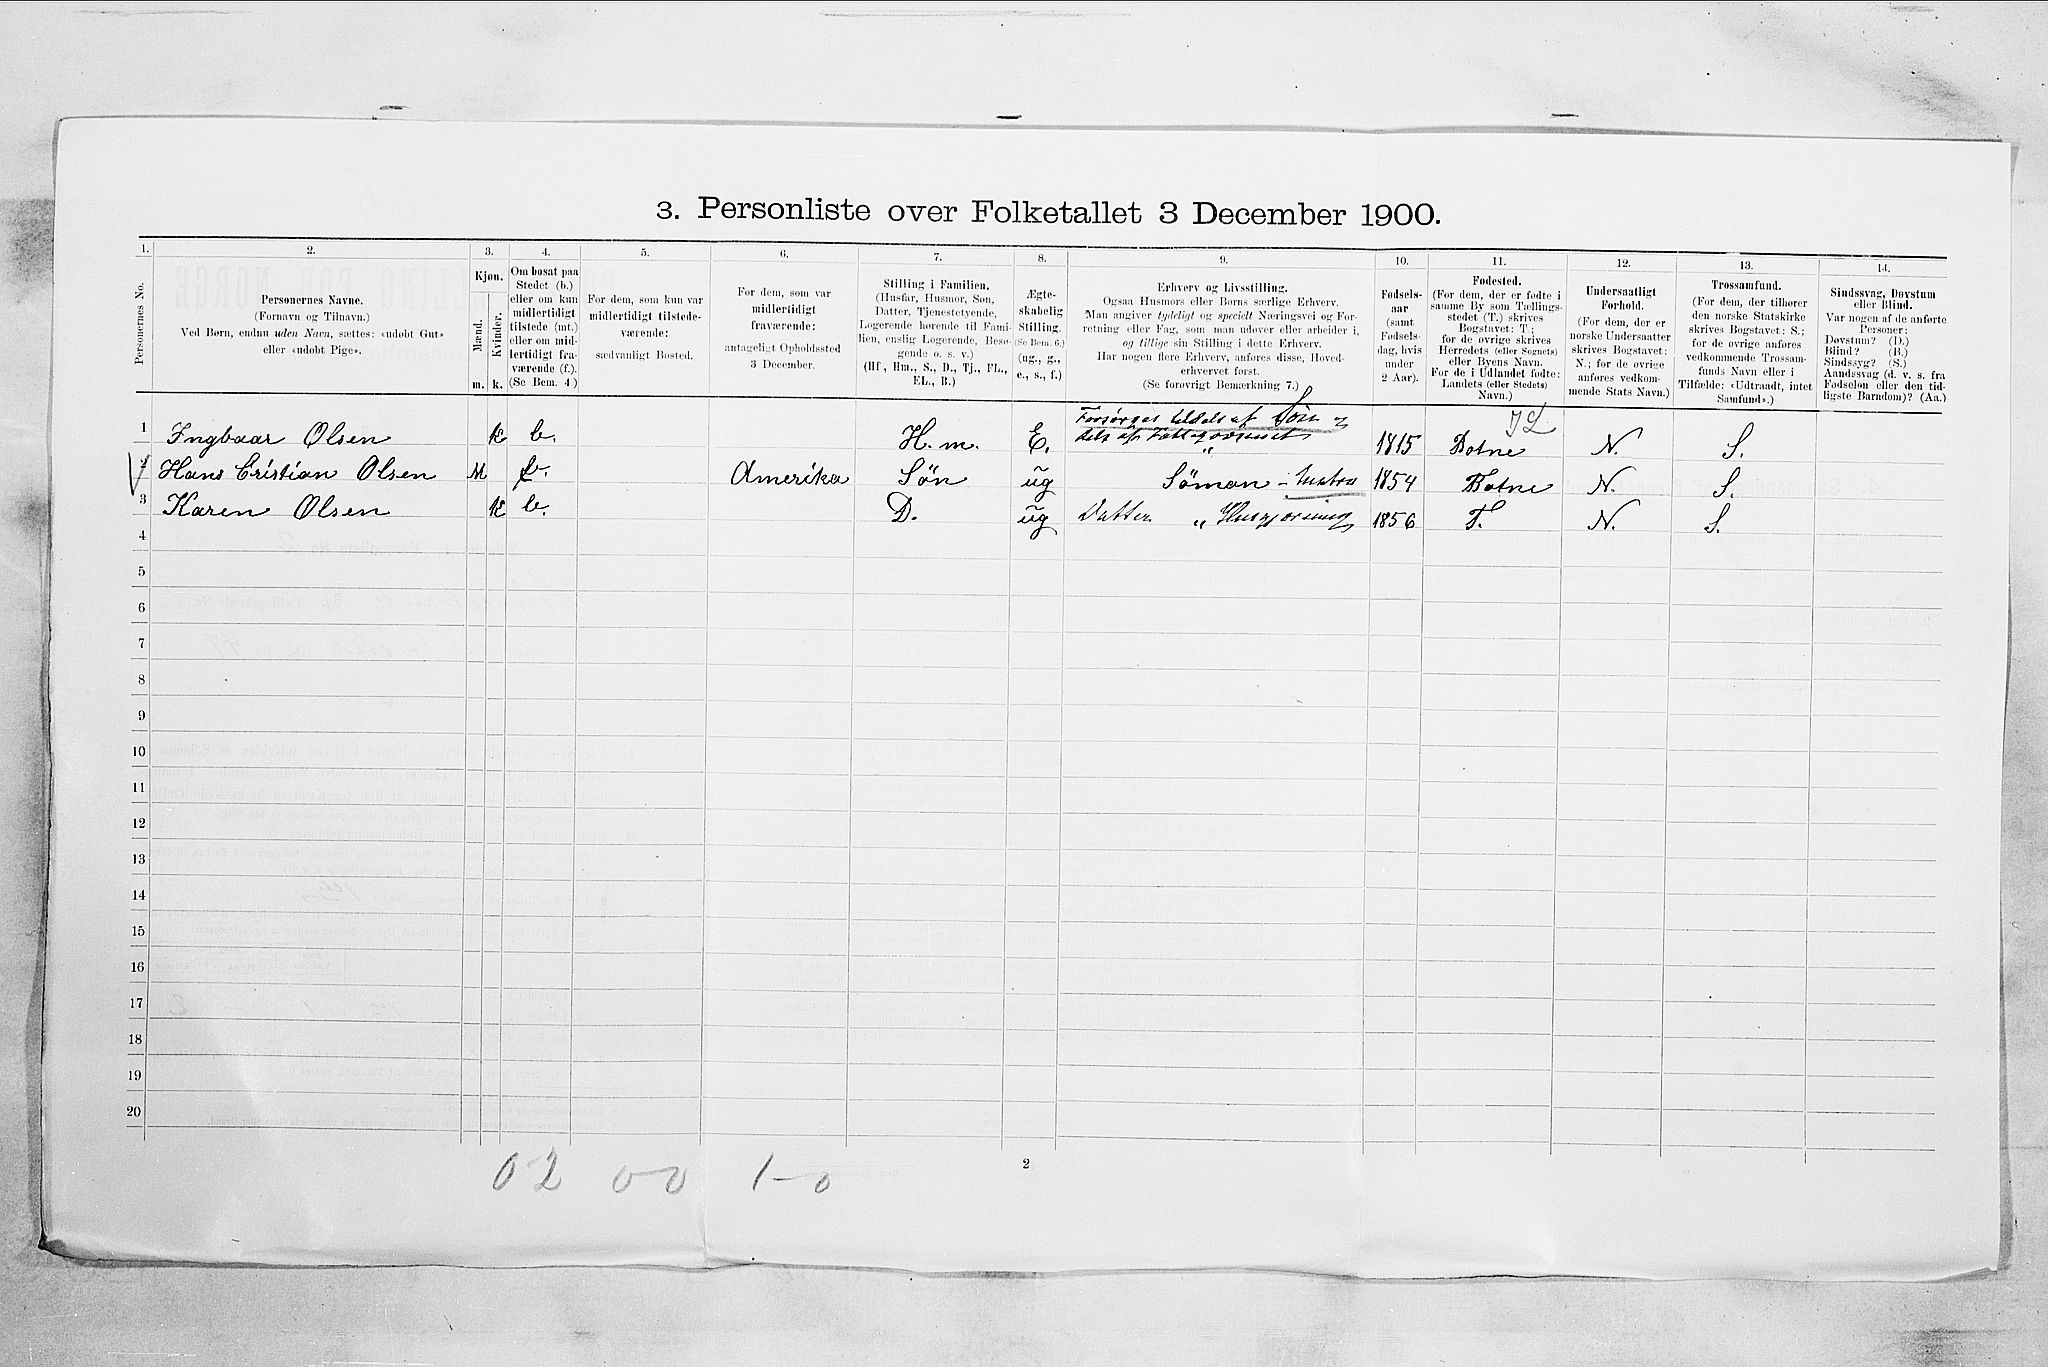 3. Personliste over Folketallet 3 December 1900.
1. 2. 3. 4. 5. 6. 7. 8. 9. 10. 11. 12. 13. 14.
Personernes No.
Personernes Navne.
(Fornavn og Tilnavn.)
Ved Børn, endnu uden Navn, sættes: «udøbt Gut»
eller «udøbt Pige».
Kjøn.
Mænd.
Kvinder.
m. k.
Om bosat paa
Stedet (b.)
eller om kun
midlertidigt
tilstede (mt.)
eller om mid-
lertidigt fra-
værende (f.).
(Se Bem. 4.)
For dem, som kun var
midlertidigt tilstede-
værende:
sædvanligt Bosted.
For dem, som var
midlertidigt
fraværende:
antageligt Opholdssted
3 December.
Stilling i Familien.
(Husfar, Husmor, Søn,
Datter, Tjenestetyende,
Logerende hørende til Fami-
lien, enslig Logerende, Besø-
gende o. s. v.)
(Hf., Hm., S., D., Tj., FL.,
EL., B.)
Ægte-
skabelig
Stilling.
(Se Bem. 6.)
(ug., g.,
e., s., f.)
Erhverv og Livsstilling.
Ogsaa Husmors eller Børns særlige Erhverv.
Man angiver tydeligt og specielt Næringsvei og For-
retning eller Fag, som man udøver eller arbeider i,
og tillige sin Stilling i dette Erhverv.
Har nogen flere Erhverv, anføres disse, Hoved-
erhvervet først.
(Se forøvrigt Bemærkning 7.)
Fødsels-
aar
(samt
Fødsels-
dag, hvis
under
2 Aar).
Fødested.
(For dem, der er fødte i
samme By som Tællings-
stedet (T.) skrives
Bogstavet: T.;
for de øvrige skrives
Herredets (eller Sognets)
eller Byens Navn.
For de i Udlandet fødte:
Landets (eller Stedets)
Navn.)
Undersaatligt
Forhold.
(For dem, der er
norske Undersaatter
skrives Bogstavet:
N.; for de øvrige
anføres vedkom-
mende Stats Navn.)
Trossamfund.
(For dem, der tilhører
den norske Statskirke
skrives Bogstavet: S.;
for de øvrige anføres
vedkommende Trossam-
funds Navn eller i
Tilfælde: «Udtraadt, intet
Samfund».)
Sindssvag, Døvstum
eller Blind.
Var nogen af de anførte
Personer:
Døvstum? (D.)
Blind? (B.)
Sindssyg? (S.)
Aandssvag (d. v. s. fra
Fødselen eller den tid-
ligste Barndom)? (Aa.)
1 Ingbaar Olsen k b. H.m. E. Forsørges tildels af Søn 1815 Botne N. S.
dels af Fattigvæsenet
2 Hans Cristian Olsen M f. Amerika Søn ug Søman 1854 Botne N. S.
3 Karen Olsen k b. D. ug Datter „ Husgjerning 1856 T. N. S.
4
5
6
7
8
9
10
11
12
13
14
15
16
17
18
19
20
2
02 0-0 1-0